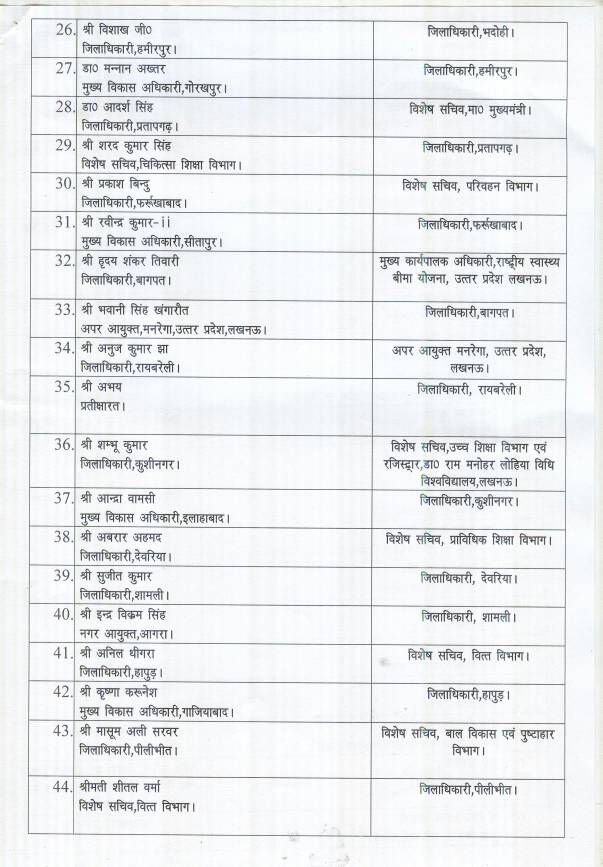 26. श्री विशाख जी० जिलाधिकारी,भदोही।
जिलाधिकारी,हमीरपुर।
27. डा० मन्नान अख्तर जिलाधिकारी,हमीरपुर।
मुख्य विकास अधिकारी,गोरखपुर।
28. डा० आदर्श सिंह विशेष सचिव,मा० मुख्यमंत्री।
जिलाधिकारी,प्रतापगढ़।
29. श्री शरद कुमार सिंह जिलाधिकारी,प्रतापगढ़।
विशेष सचिव,चिकित्सा शिक्षा विभाग।
30. श्री प्रकाश बिन्दु विशेष सचिव, परिवहन विभाग।
जिलाधिकारी,फर्रूखाबाद।
31. श्री रवीन्द्र कुमार-ii जिलाधिकारी,फर्रूखाबाद।
मुख्य विकास अधिकारी,सीतापुर।
32. श्री हृदय शंकर तिवारी मुख्य कार्यपालक अधिकारी,राष्ट्रीय स्वास्थ्य
जिलाधिकारी,बागपत। बीमा योजना, उत्तर प्रदेश लखनऊ।
33. श्री भवानी सिंह खंगारौत जिलाधिकारी,बागपत।
अपर आयुक्त,मनरेगा,उत्तर प्रदेश,लखनऊ।
34. श्री अनुज कुमार झा अपर आयुक्त मनरेगा, उत्तर प्रदेश,
जिलाधिकारी,रायबरेली। लखनऊ।
35. श्री अभय जिलाधिकारी, रायबरेली।
प्रतीक्षारत।
36. श्री शम्भू कुमार विशेष सचिव,उच्च शिक्षा विभाग एवं
जिलाधिकारी,कुशीनगर। रजिस्ट्रार,डा० राम मनोहर लोहिया विधि
विश्वविद्यालय,लखनऊ।
37. श्री आन्द्रा वामसी जिलाधिकारी,कुशीनगर।
मुख्य विकास अधिकारी,इलाहाबाद।
38. श्री अबरार अहमद विशेष सचिव, प्राविधिक शिक्षा विभाग।
जिलाधिकारी,देवरिया।
39. श्री सुजीत कुमार जिलाधिकारी, देवरिया।
जिलाधिकारी,शामली।
40. श्री इन्द्र विक्रम सिंह जिलाधिकारी, शामली।
नगर आयुक्त,आगरा।
41. श्री अनिल धीगरा विशेष सचिव, वित्त विभाग।
जिलाधिकारी,हापुड़।
42. श्री कृष्णा करूनेश जिलाधिकारी,हापुड़।
मुख्य विकास अधिकारी,गाजियाबाद।
43. श्री मासूम अली सरवर विशेष सचिव, बाल विकास एवं पुष्टाहार
जिलाधिकारी,पीलीभीत। विभाग।
44. श्रीमती शीतल वर्मा जिलाधिकारी,पीलीभीत।
विशेष सचिव,वित्त विभाग।